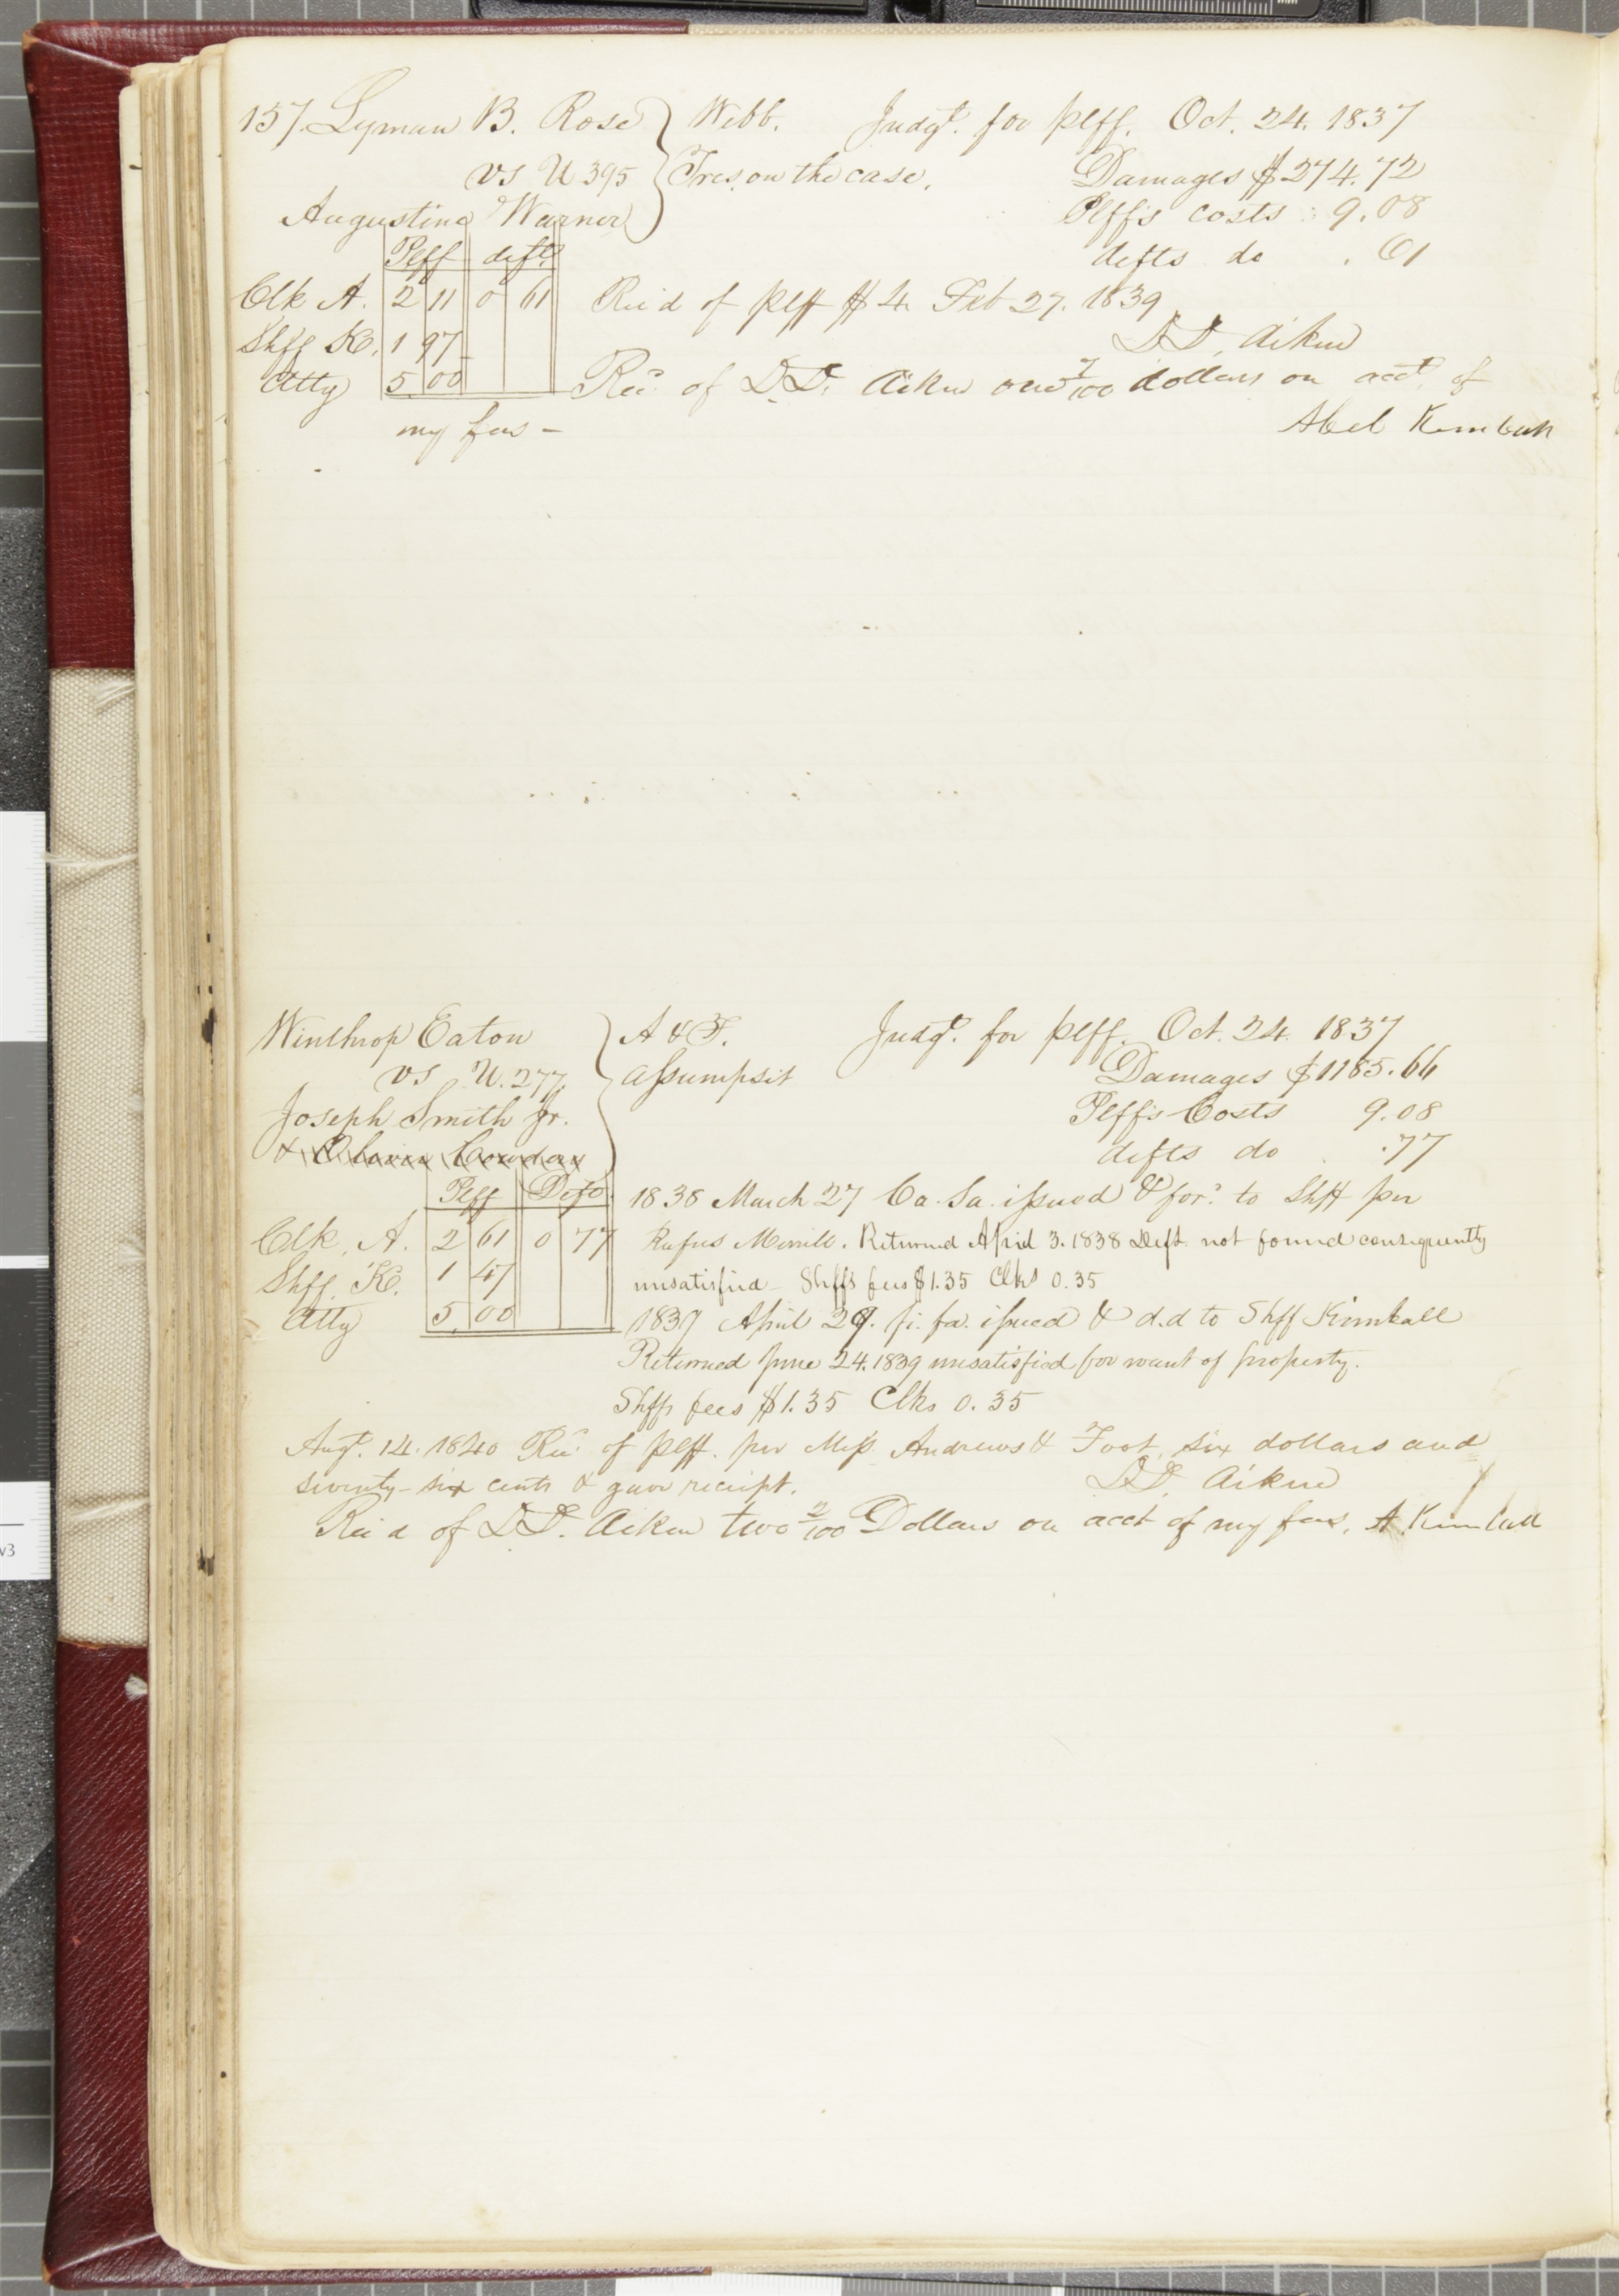 157. Lyman B. Rose } Webb. Judgt. for plff. Oct. 24. 1837
vs U 395 } Tres. on the case. Damages $274.72
Augustine Warner } Plffs costs 9.08
defts do . 61
Plff deft
Clk A. 2 11 0 61 Rec'd of plff $4 Feb 27. 1839
Shff K. 1 97 D.D. Aiken
Atty 5 00 Rec. of D.D. Aiken one 7/100 dollars on acct of
my fees - Abel Kimball
Winthrop Eaton } A & F. Judgt. for plff. Oct. 24. 1837
vs U. 277. } Assumpsit Damages $1185.66
Joseph Smith Jr. } Plffs Costs 9.08
& Oliver Cowdery defts do .77
Plff Deft 1838 March 27 Ca. Sa. issued & for'd to Shff per
Clk. A. 2 61 0 77 Rufus Merrill. Returned April 3. 1838 Deft. not found consequently
Shff. K. 1 47 unsatisfied - Shffs fees $1.35 Clks 0.35
Atty 5 00 1837 April 29. fi. fa. issued & d.d to Shff Kimball
Returned June 24. 1839 unsatisfied for want of property.
Shffs fees $1.35 Clks 0.35
Augt. 14. 1840 Rec. of plff. per Mess Andrews & Foot, six dollars and
seventy-six cents & gave receipt. D.D. Aiken
Rec'd of D.D. Aiken two 2/100 Dollars on acct of my fees, A. Kimball